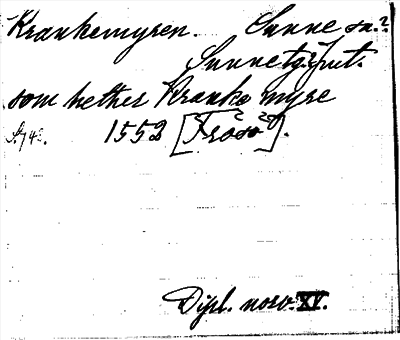 Krankemyren. Sunne sn.?
Sunne tg. Jmt.
som hethes Kranke myre
S. 74. 1552 [Frösö?].
Dipl. norv. XV.